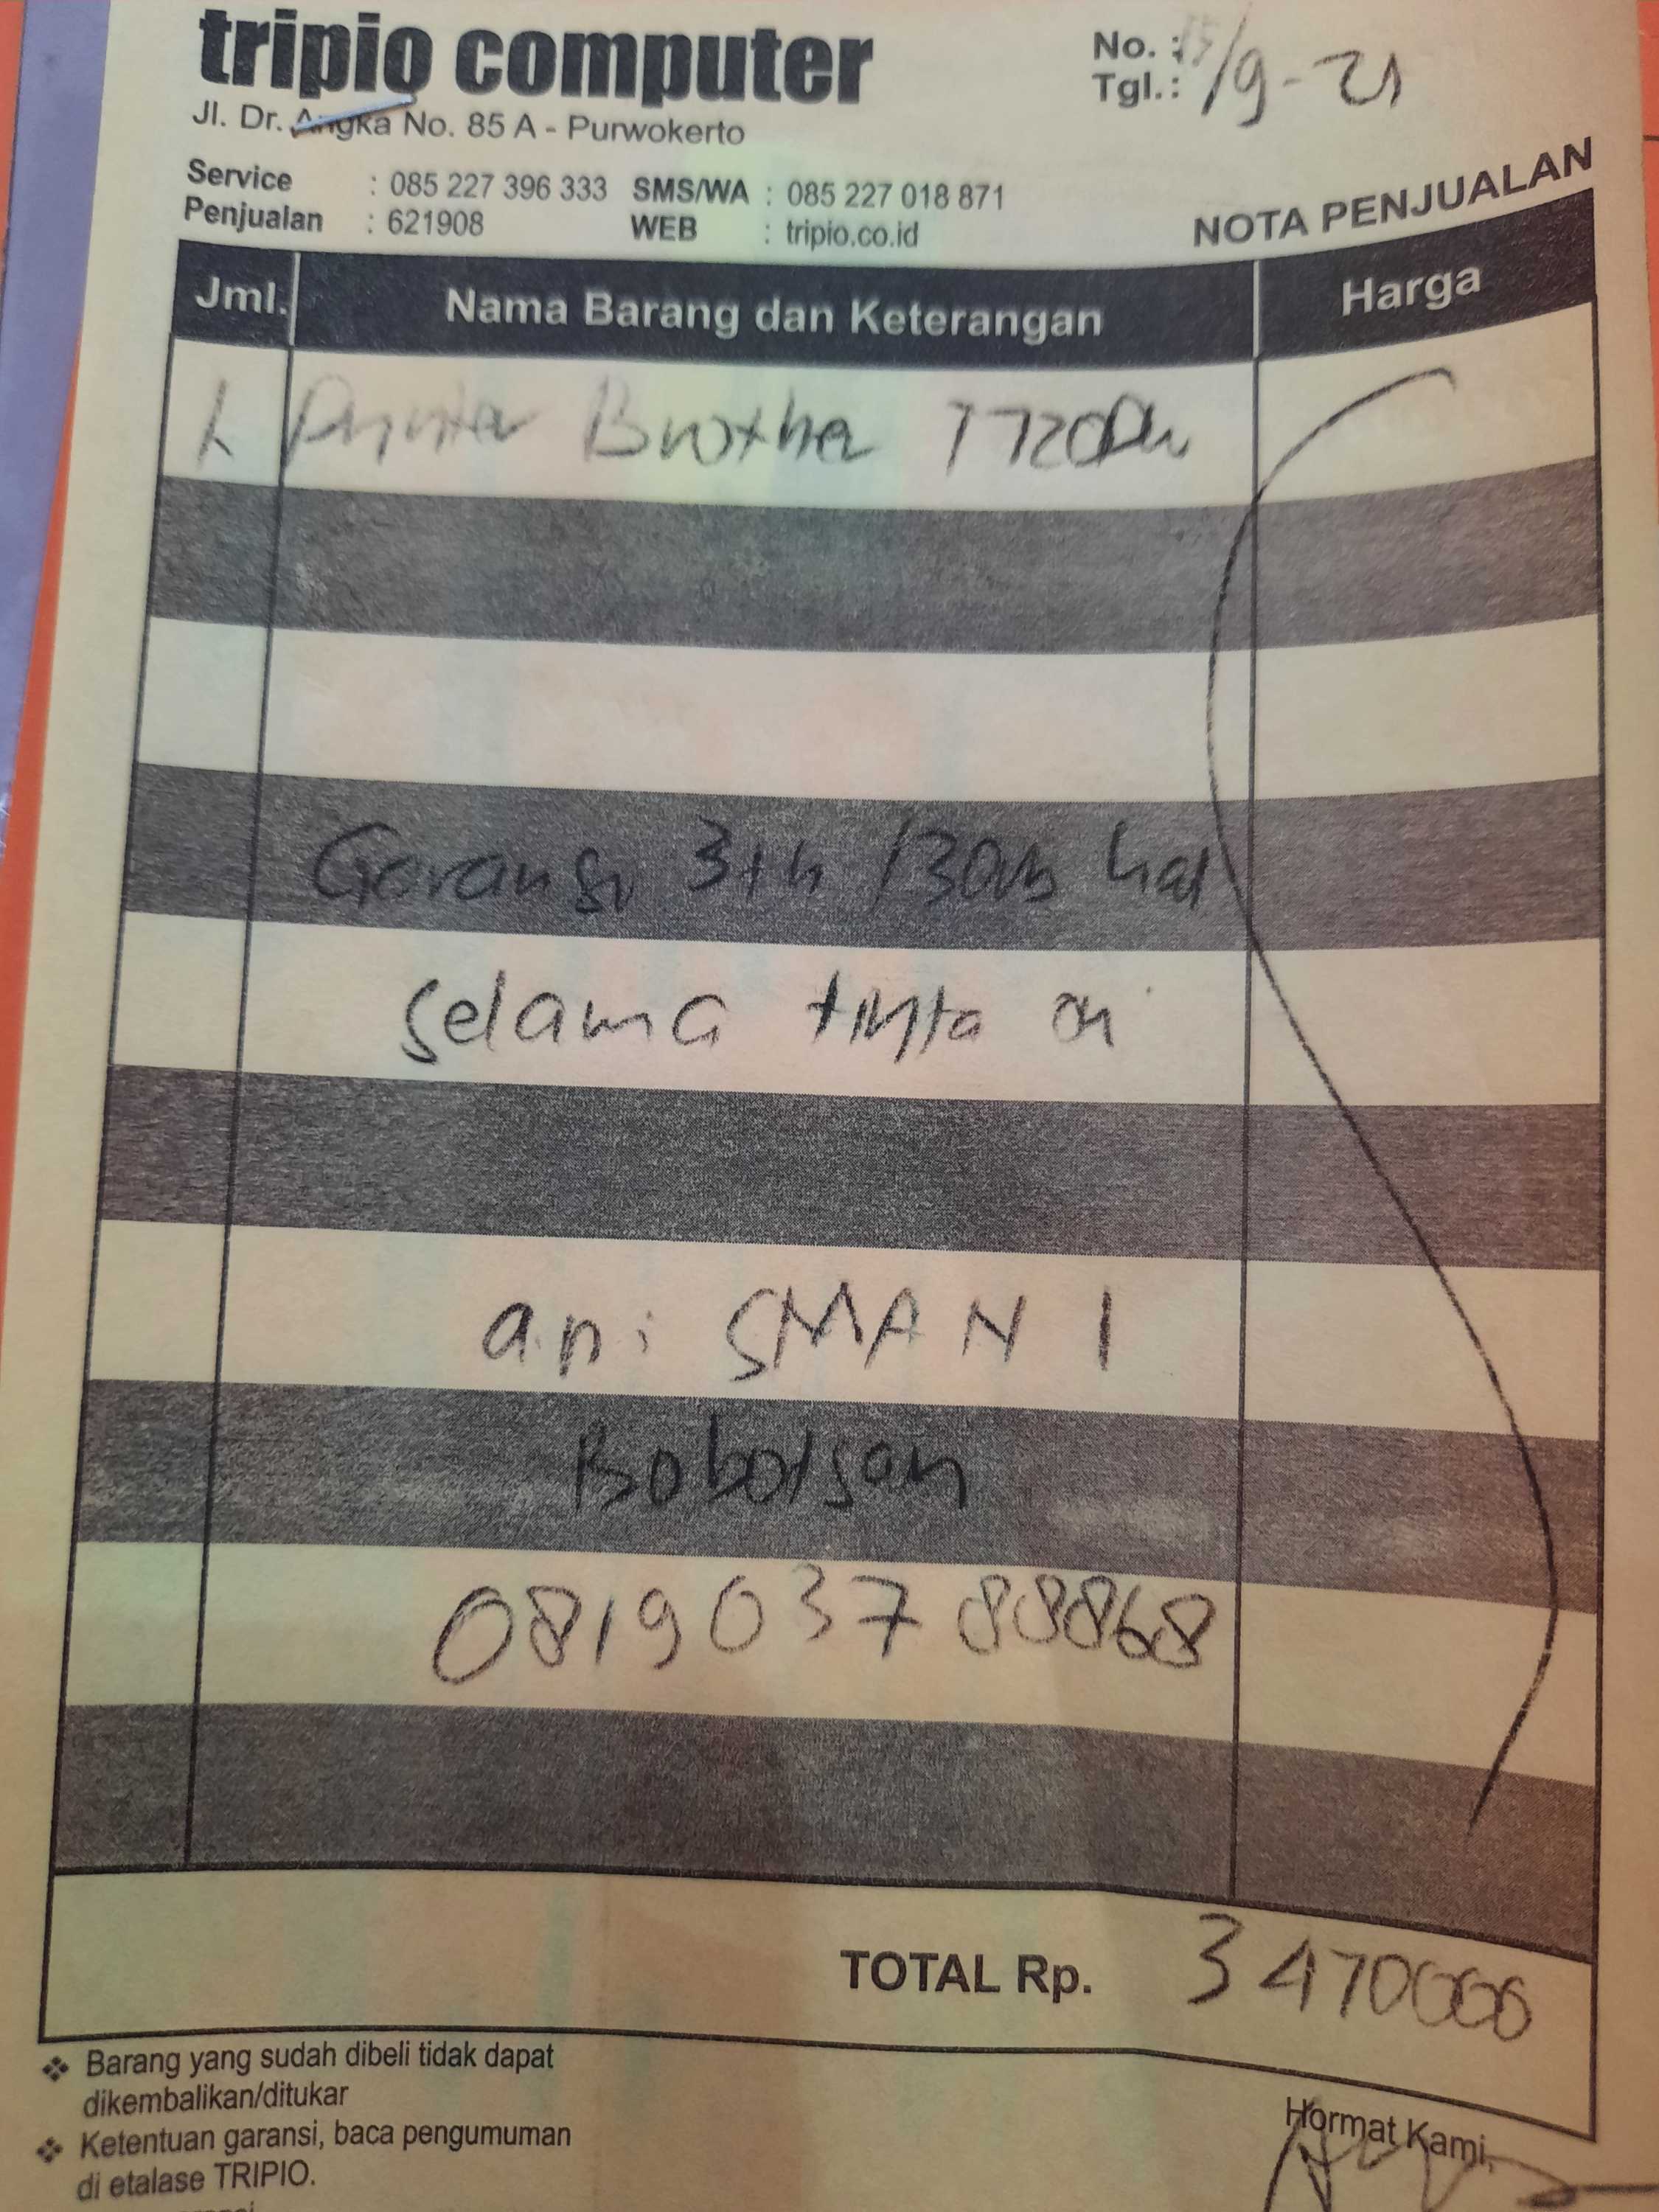 tripio computer
No. :
Tgl.: 15/9-21
Jl. Dr. Angka No. 85 A - Purwokerto
Service : 085 227 396 333 SMS/WA : 085 227 018 871
Penjualan : 621908 WEB : tripio.co.id
NOTA PENJUALAN
Jml. Nama Barang dan Keterangan Harga
1 Printer Brother T720DW
Garansi 3th /30rb hal
selama tinta ori
an: SMAN 1
Bobotsari
0819 037 88868
TOTAL Rp. 3470000
❖ Barang yang sudah dibeli tidak dapat
dikembalikan/ditukar
❖ Ketentuan garansi, baca pengumuman
di etalase TRIPIO.
Hormat Kami,